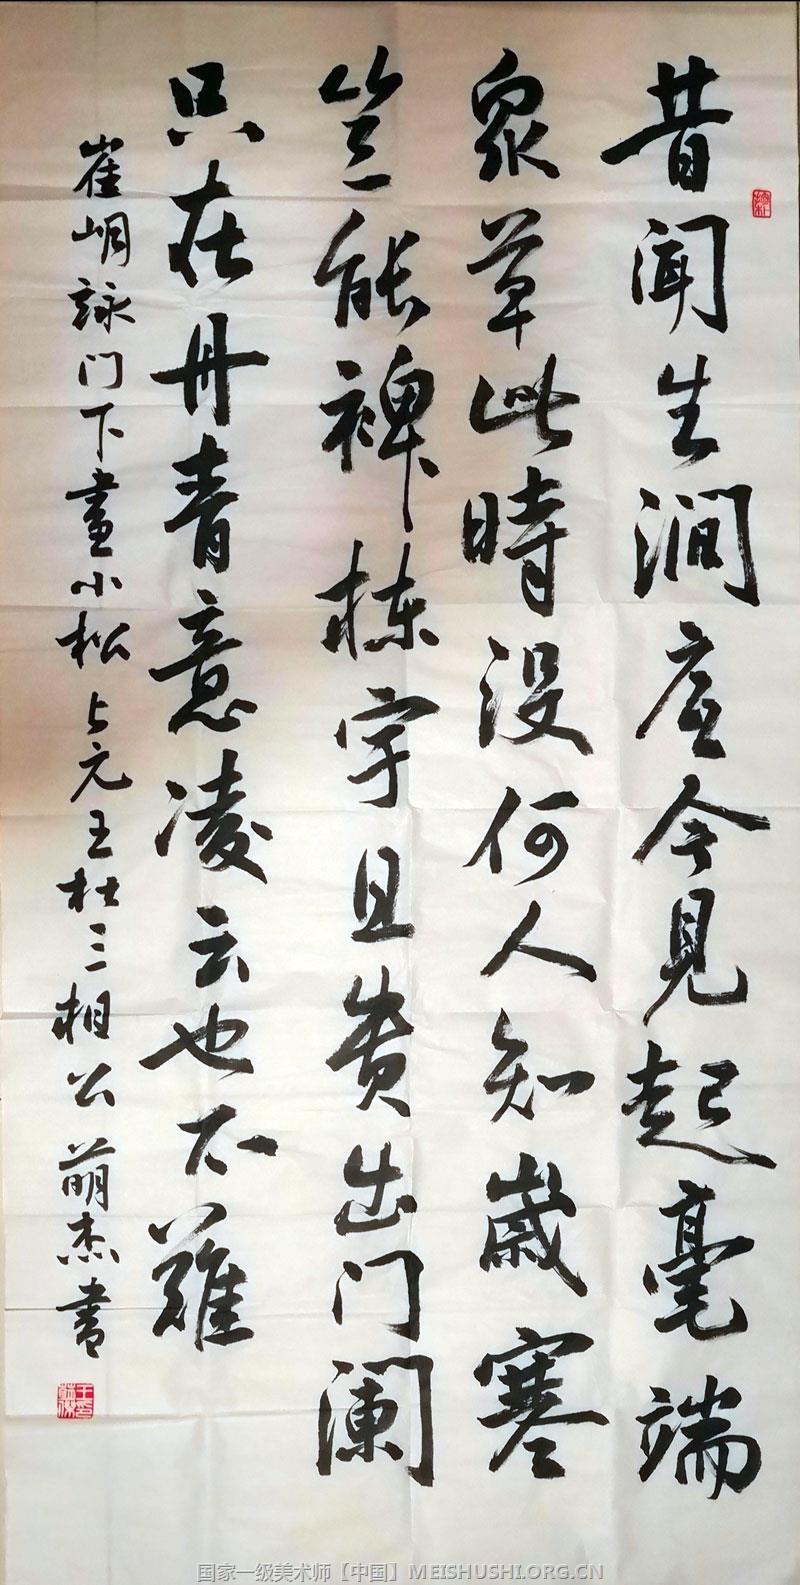 昔闻生涧底今见起毫端
衆草此時没何人知歲寒
岂能裨栋宇且贵出门阑
只在丹青意凌云也不難
崔峒詠门下畫小松上元王杜三相公 萌杰書
国家一级美术师【中国】MEISHUSHI.ORG.CN